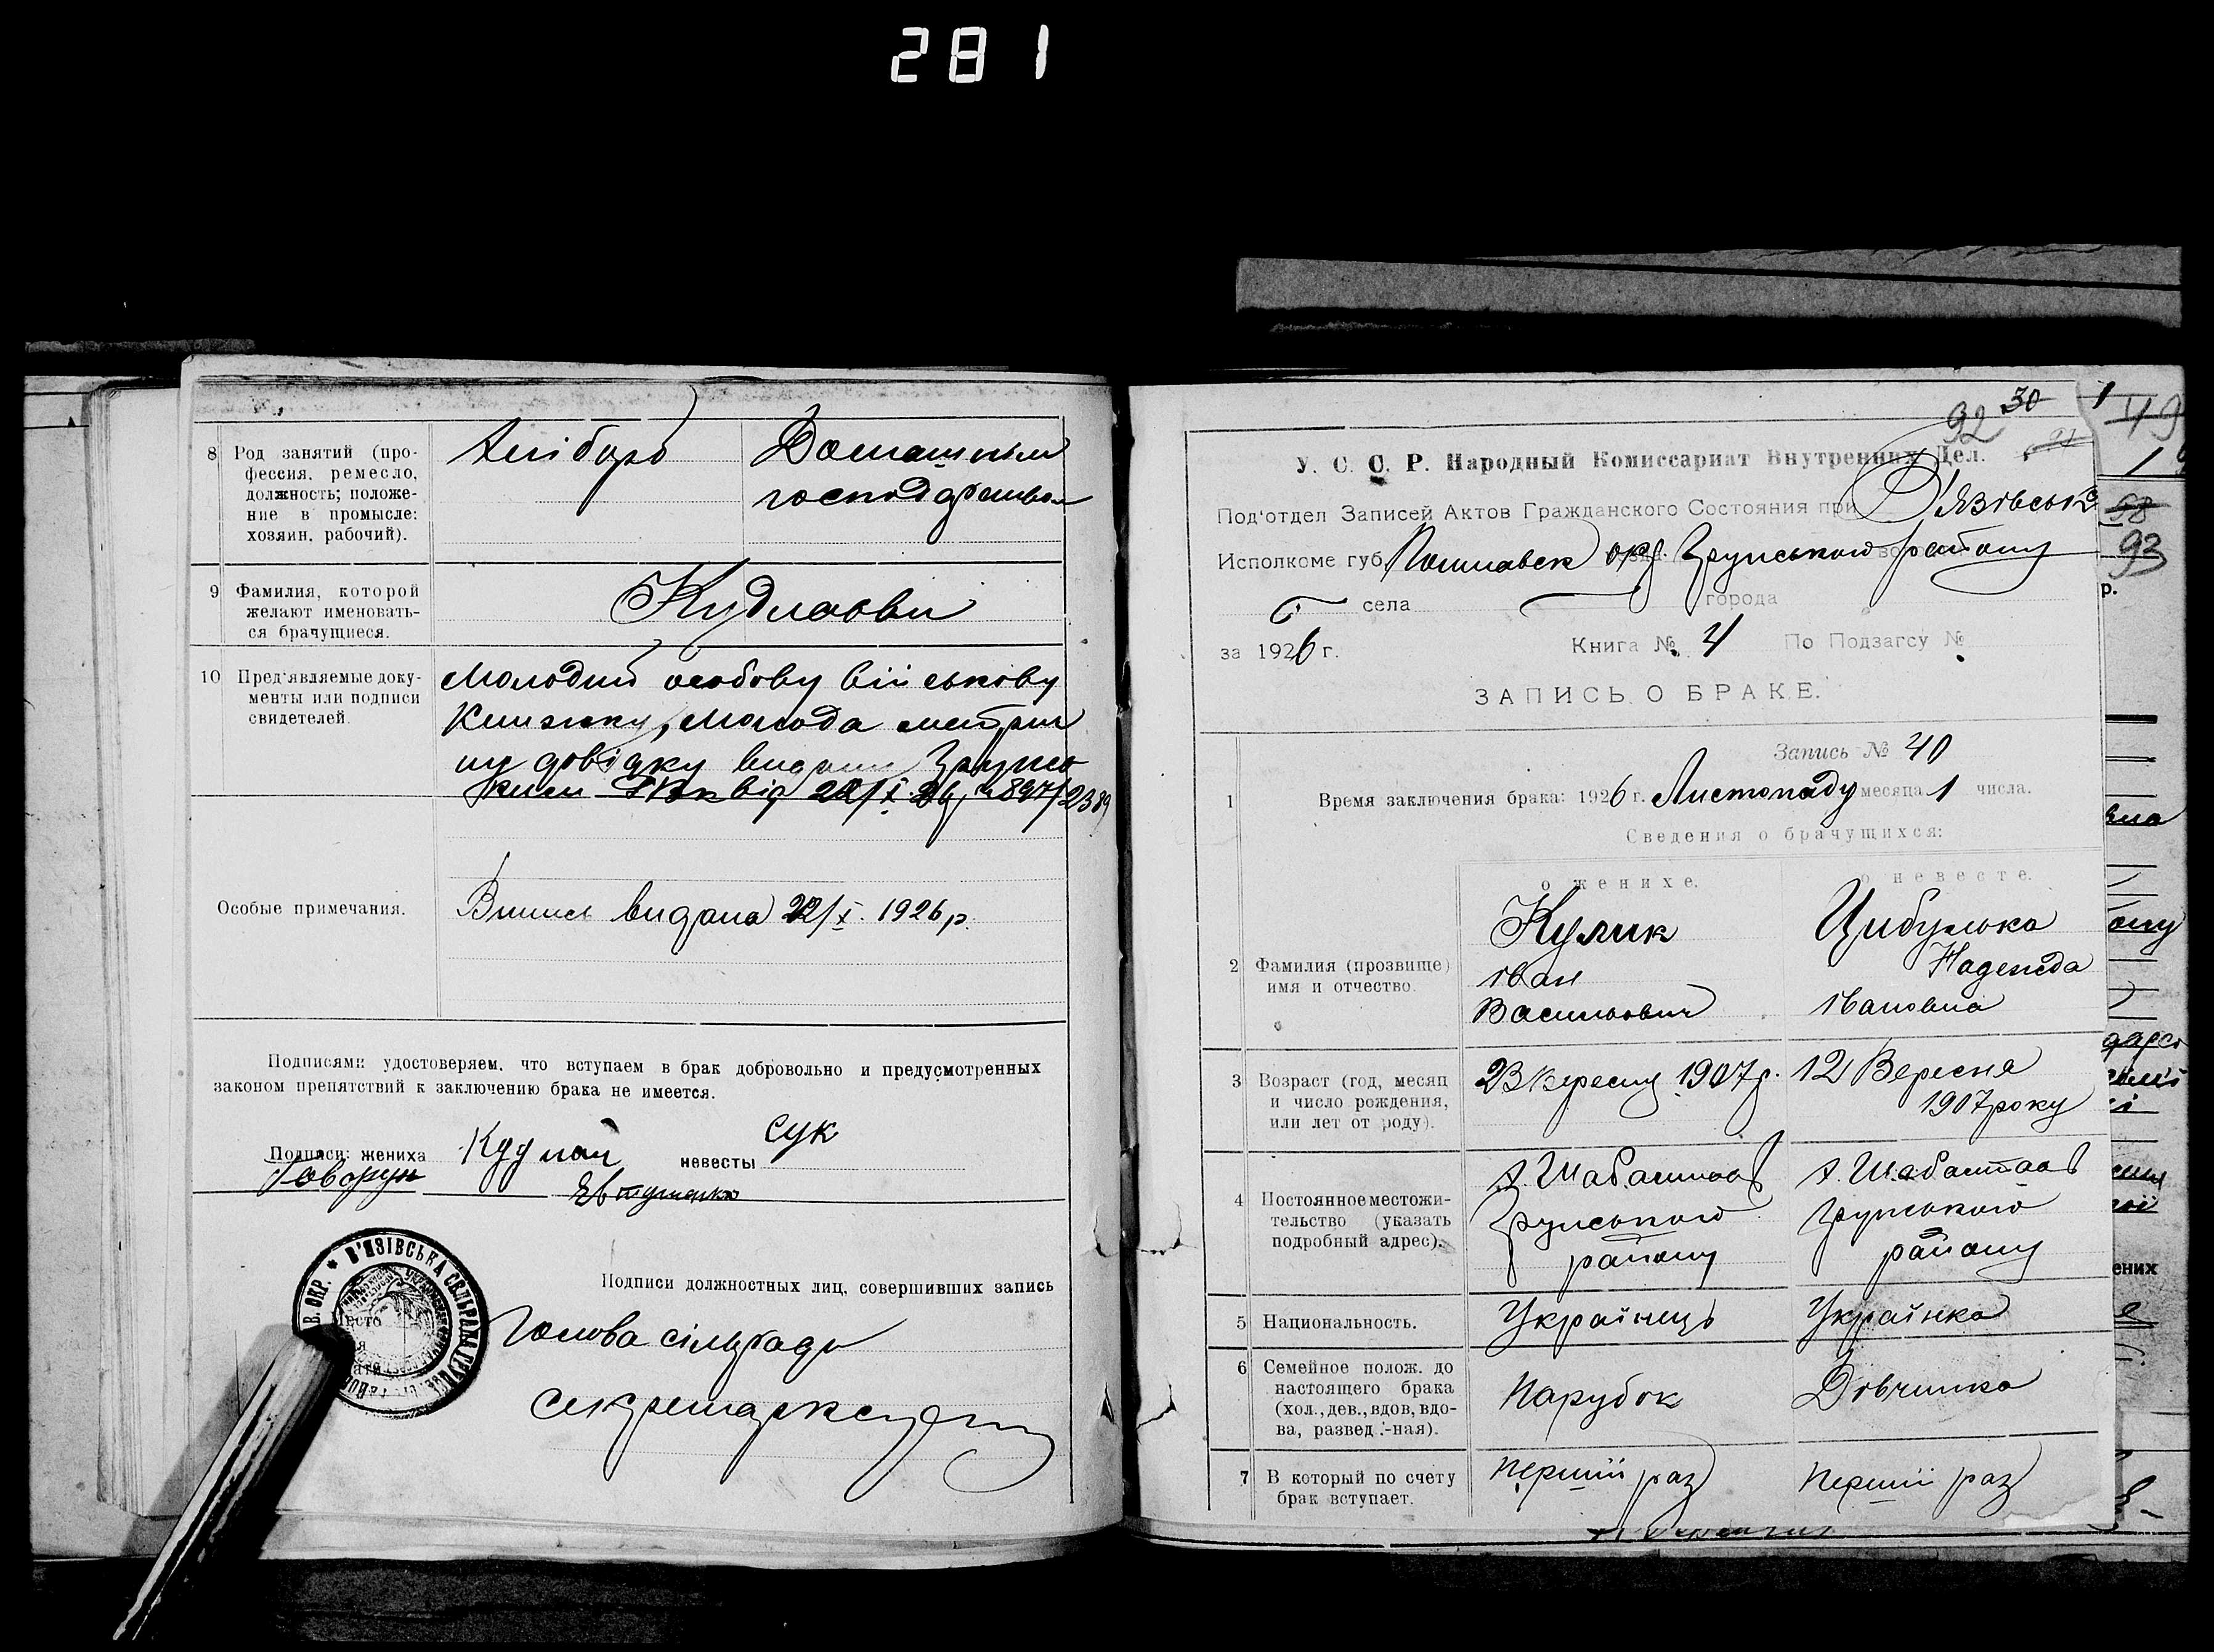 281
8 Род занятий (про-
фессия, ремесло,
должность; положе-
ние в промысле:
хозяин, рабочий).
Хлібороб
Домашньом
господарством
9 Фамилия, которой
желают именовать-
ся брачущиеся.
Кудлаєви
10 Пред'являемые доку-
менты или подписи
свидетелей.
Молодий особову військову
книжку, молода метрич
ну довідку видану Грунсь
ким РВК від 22/X 26 р 897/2389
Особые примечания.
Випись видана 22/X. 1926 р.
Подписями удостоверяем, что вступаем в брак добровольно и предусмотренных
законом препятствий к заключению брака не имеется.
Подписи: жениха Кудлай невесты Сук
Говорун Євтушенко
В'ЯЗІВСЬКА СІЛЬРАДА
Место
Подписи должностных лиц, совершивших запись
Голова сільради
Секретар
92 30
У. С. С. Р. Народный Комиссариат Внутренних Дел.
Под'отдел Записей Актов Гражданского Состояния при В'язівське
Исполкоме губ. Полтавськ окр. Грунського району
села города
за 1926 г. Книга № 4 По Подзагсу №
ЗАПИСЬ О БРАКЕ.
Запись № 40
1 Время заключения брака: 1926 г. Листопаду месяца 1 числа.
Сведения о брачущихся:
о женихе. о невесте.
2 Фамилия (прозвище)
имя и отчество.
Кулик
Іван
Васильович
Цибулька
Надежда
Івановна
3 Возраст (год, месяц
и число рождения,
или лет от роду).
23 Вересня 1907 р.
12 Вересня
1907 року
4 Постоянное местожи-
тельство (указать
подробный адрес).
х. Шабалтаєв
Грунського
району
х. Шабалтаєв
Грунського
району
5 Национальность.
Українець
Українка
6 Семейное полож. до
настоящего брака
(хол., дев., вдов, вдо-
ва, развед.-ная).
Парубок
Дівчинка
7 В который по счету
брак вступает.
Перший раз
Перший раз
93
р.
ених